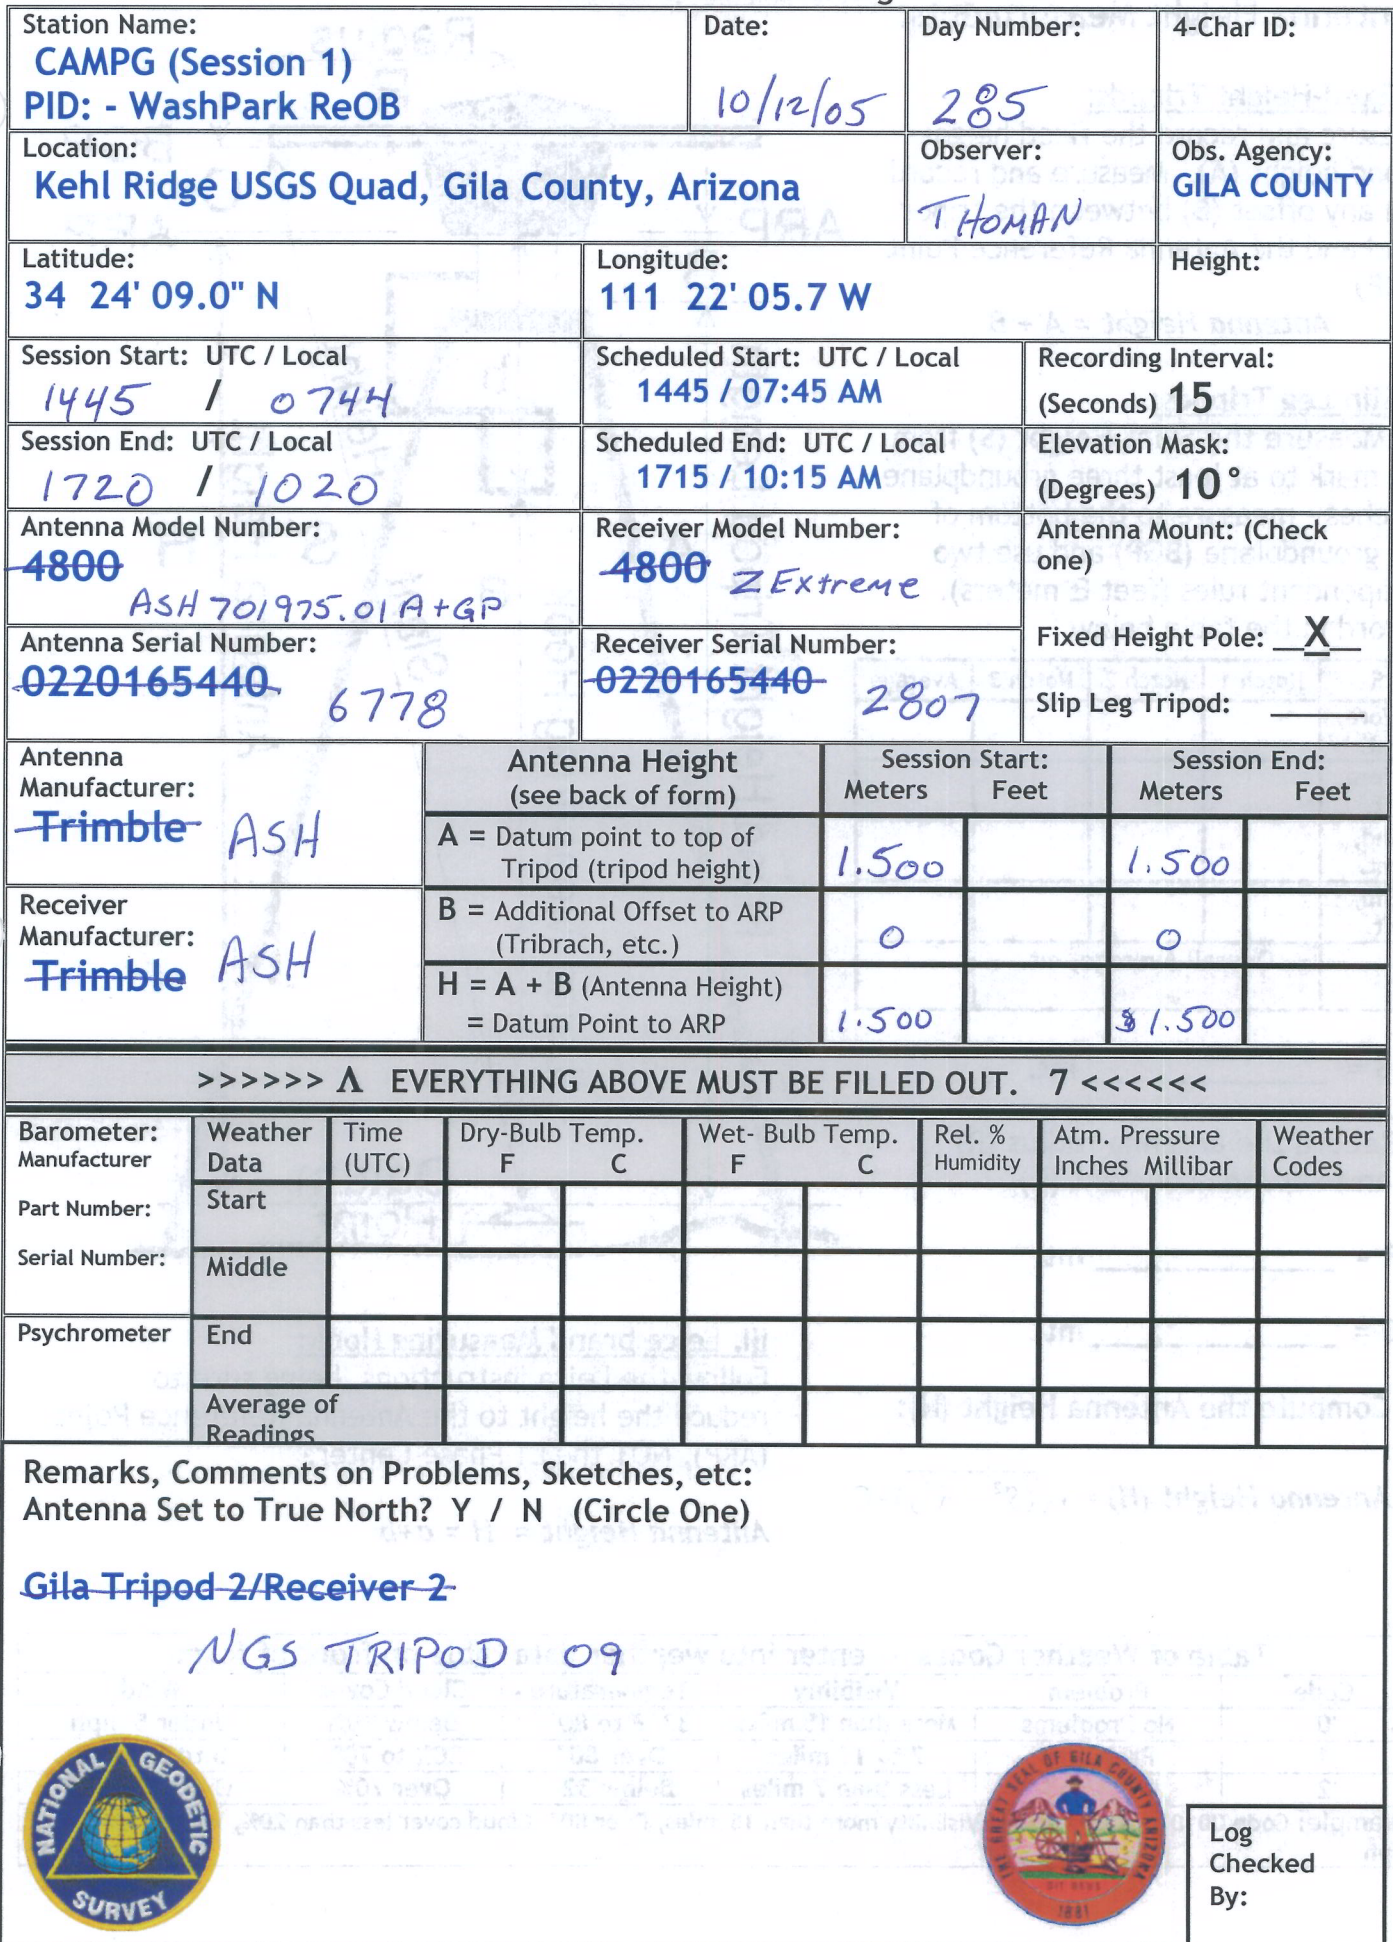 Station Name:
CAMPG (Session 1)
PID: - WashPark ReOB
Date:
10/12/05
Day Number:
285
4-Char ID:
Location:
Kehl Ridge USGS Quad, Gila County, Arizona
Observer:
THOMAN
Obs. Agency:
GILA COUNTY
Latitude:
34 24' 09.0" N
Longitude:
111 22' 05.7 W
Height:
Session Start: UTC / Local
1445 / 0744
Scheduled Start: UTC / Local
1445 / 07:45 AM
Recording Interval:
(Seconds) 15
Session End: UTC / Local
1720 / 1020
Scheduled End: UTC / Local
1715 / 10:15 AM
Elevation Mask:
(Degrees) 10°
Antenna Model Number:
4800
ASH 701975.01A+GP
Receiver Model Number:
4800 ZExtreme
Antenna Mount: (Check
one)
Fixed Height Pole: X
Slip Leg Tripod:
Antenna Serial Number:
0220165440
6778
Receiver Serial Number:
0220165440
2807
Antenna
Manufacturer:
Trimble ASH
Receiver
Manufacturer:
Trimble ASH
Antenna Height
(see back of form)
Session Start:
Meters Feet
Session End:
Meters Feet
A = Datum point to top of
Tripod (tripod height)
1.500 1.500
B = Additional Offset to ARP
(Tribrach, etc.)
0 0
H = A + B (Antenna Height)
= Datum Point to ARP
1.500 1.500
>>>>>> Λ EVERYTHING ABOVE MUST BE FILLED OUT. 7 <<<<<<
Barometer:
Manufacturer
Part Number:
Serial Number:
Psychrometer
Weather
Data
Time
(UTC)
Dry-Bulb Temp.
F C
Wet- Bulb Temp.
F C
Rel. %
Humidity
Atm. Pressure
Inches Millibar
Weather
Codes
Start
Middle
End
Average of
Readings
Remarks, Comments on Problems, Sketches, etc:
Antenna Set to True North? Y / N (Circle One)
Gila Tripod 2/Receiver 2
NGS TRIPOD 09
NATIONAL GEODETIC SURVEY
THE GREAT SEAL OF GILA COUNTY ARIZONA
1881
Log
Checked
By: